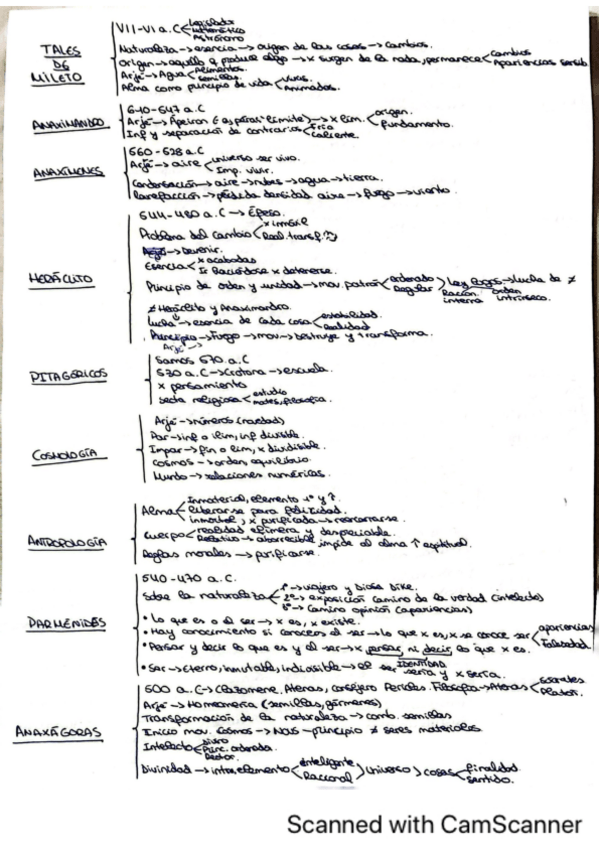 TALES DE MILETO
VII-VI a.C Legislador Matemático Astrónomo
Naturaleza → esencia → origen de las cosas → cambios.
Origen → aquello q produce algo → x surgen de la nada, permanece cambios Apariencias sensib
Arjé → Agua Alimentos. semillas.
Alma como principio de vida vivos. Animados.
ANAXIMANDRO
610-547 a.C
Arjé → Ápeiron (límite) → x lim. origen. fundamento.
Inf y separación de contrarios fría caliente.
ANAXÍMENES
560-528 a.C
Arjé → aire universo ser vivo. Imp. vivir.
Condensación → aire → nubes → agua → tierra.
Rarefacción → pérdida densidad aire → fuego → viento.
HERÁCLITO
544-480 a.C → Éfeso.
Problema del cambio x inmóvil Real. transf.
Arjé → Devenir.
Esencia x acabadas Ir haciéndose x detenerse.
Principio de orden y unidad → mov. patrón ordenado Regular Ley Logos → lucha de ≠
Razón interna orden intrínseco.
≠ Heráclito y Anaximandro.
Lucha → esencia de cada cosa estabilidad. Realidad
Principio → Fuego → mov → destruye y transforma.
Arjé →
PITAGÓRICOS
Samos 570 a.C
530 a.C → Crotona → escuela.
x pensamiento
secta religiosa estudio mates, filosofía.
COSMOLOGÍA
Arjé → números (realidad)
Par → inf o ilim, inf divisible.
Impar → fin o lim, x divisible.
cosmos → orden, equilibrio.
Mundo → relaciones numéricas.
ANTROPOLOGÍA
Alma Inmaterial, elemento 1º y ↑. liberarse para felicidad. inmortal, x purificada → reencarnarse.
Cuerpo realidad efímera y despreciable. Relativo → aborrecible impide al alma ↑ espiritual.
Reglas morales → purificarse.
PARMÉNIDES
540-470 a.C.
Sobre la naturaleza 1º → viajero y Diosa Dike. 2º → exposición camino de la verdad (intelecto) 3º → Camino opinión (apariencias)
• Lo que es o el ser → x es, x existe.
• Hay conocimiento si conocem el ser → lo que x es, x se conoce ser apariencias Falsedad
• Pensar y decir lo que es y el ser → x pensar, ni decir, lo que x es.
IDENTIDAD
• Ser → Eterno, inmutable, indivisible → el ser sería y x sería.
ANAXÁGORAS
500 a.C → Clazomene, Atenas, consejero Pericles. Filosofía → Atenas Sócrates Platón.
Arjé → Homeomería (semillas, gérmenes)
Transformación de la naturaleza → comb. semillas
Inicio mov. cosmos → NOUS → principio ≠ seres materiales
Intelecto Divino Func. ordenada. Rector.
Divinidad → elemento inteligente Racional universo cosas finalidad sentido.
Scanned with CamScanner